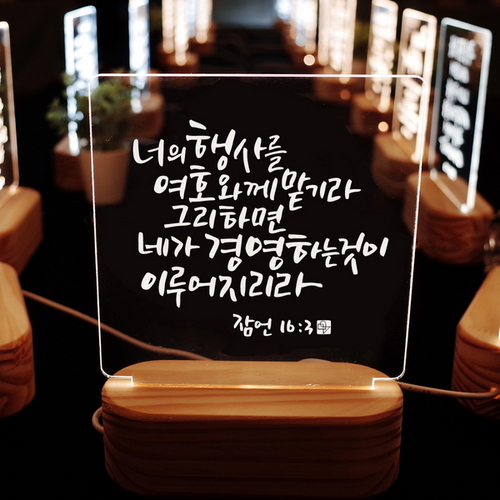 너의 행사를
여호와께 맡기라
그리하면
네가 경영하는것이
이루어지리라
잠언 16:3